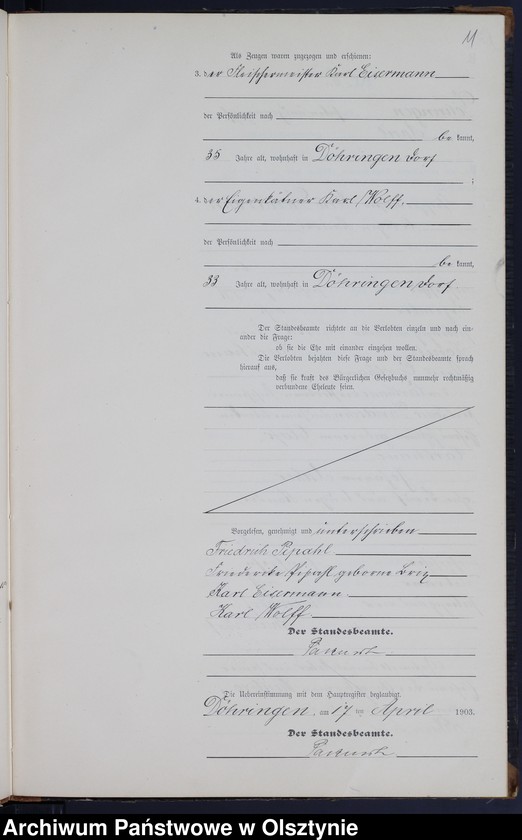 11
Als Zeugen waren zugezogen und erschienen:
3. der Fleischermeister Karl Eisermann
der Persönlichkeit nach
be kannt,
35 Jahre alt, wohnhaft in Döhringen Dorf
;
4. der Eigenkätner Karl Wolff.
der Persönlichkeit nach
be kannt,
33 Jahre alt, wohnhaft in Döhringen Dorf
Der Standesbeamte richtete an die Verlobten einzeln und nach ein-
ander die Frage:
ob sie die Ehe mit einander eingehen wollen.
Die Verlobten bejahten diese Frage und der Standesbeamte sprach
hierauf aus,
daß sie kraft des Bürgerlichen Gesetzbuchs nunmehr rechtmäßig
verbundene Eheleute seien.
Vorgelesen, genehmigt und unterschrieben
Friedrich Pipahl
Friederike Pipahl geborne
Karl Eisermann
Karl Wolff
Der Standesbeamte.
Die Uebereinstimmung mit dem Hauptregister beglaubigt.
Döhringen, am 17 ten April 1903.
Der Standesbeamte.
Archiwum Państwowe w Olsztynie